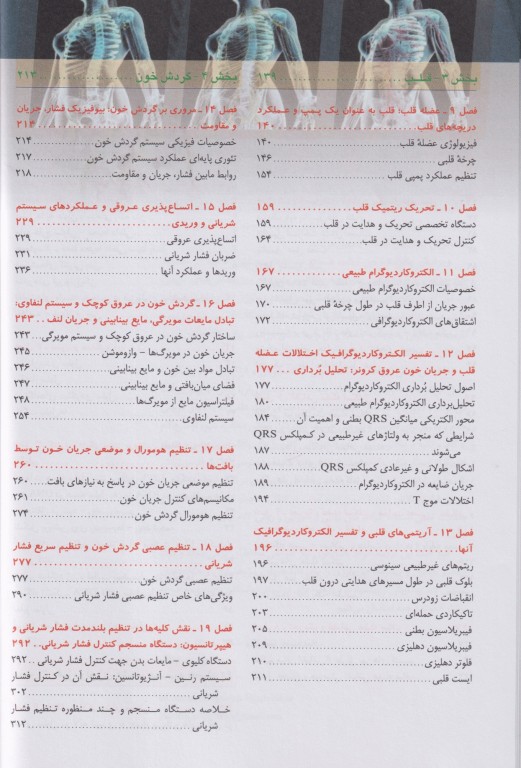 بخش ۳ - قلب ........ ۱۳۹
فصل ۹ ـ عضله قلب؛ قلب به عنوان یک پمپ و عملکرد
دریچه‌های قلب ........ ۱۴۰
فیزیولوژی عضلهٔ قلب ........ ۱۴۰
چرخهٔ قلبی ........ ۱۴۶
تنظیم عملکرد پمپی قلب ........ ۱۵۴
فصل ۱۰ ـ تحریک ریتمیک قلب ........ ۱۵۹
دستگاه تخصصی تحریک و هدایت در قلب ........ ۱۵۹
کنترل تحریک و هدایت در قلب ........ ۱۶۴
فصل ۱۱ ـ الکتروکاردیوگرام طبیعی ........ ۱۶۷
خصوصیات الکتروکاردیوگرام طبیعی ........ ۱۶۷
عبور جریان از اطراف قلب در طول چرخهٔ قلبی ........ ۱۷۰
اشتقاق‌های الکتروکاردیوگرافی ........ ۱۷۲
فصل ۱۲ ـ تفسیر الکتروکاردیوگرافیک اختلالات عضله
قلب و جریان خون عروق کرونر: تحلیل بُرداری ... ۱۷۷
اصول تحلیل بُرداری الکتروکاردیوگرام ........ ۱۷۷
تحلیل‌برداری الکتروکاردیوگرام طبیعی ........ ۱۸۰
محور الکتریکی میانگین QRS بطنی و اهمیت آن ........ ۱۸۴
شرایطی که منجر به ولتاژهای غیرطبیعی در کمپلکس QRS
می‌شوند ........ ۱۸۷
اشکال طولانی و غیرعادی کمپلکس QRS ........ ۱۸۸
جریان ضایعه در الکتروکاردیوگرام ........ ۱۸۹
اختلالات موج T ........ ۱۹۴
فصل ۱۳ ـ آریتمی‌های قلبی و تفسیر الکتروکاردیوگرافیک
آنها ........ ۱۹۶
ریتم‌های غیرطبیعی سینوسی ........ ۱۹۶
بلوک قلبی در طول مسیرهای هدایتی درون قلب ........ ۱۹۷
انقباضات زودرس ........ ۲۰۰
تاکیکاردی حمله‌ای ........ ۲۰۳
فیبریلاسیون بطنی ........ ۲۰۵
فیبریلاسیون دهلیزی ........ ۲۰۹
فلوتر دهلیزی ........ ۲۱۰
ایست قلبی ........ ۲۱۱
بخش ۴ - گردش خون ........ ۲۱۳
فصل ۱۴ ـ مروری بر گردش خون؛ بیوفیزیک فشار، جریان
و مقاومت ........ ۲۱۴
خصوصیات فیزیکی سیستم گردش خون ........ ۲۱۴
تئوری پایه‌ای عملکرد سیستم گردش خون ........ ۲۱۷
روابط مابین فشار، جریان و مقاومت ........ ۲۱۸
فصل ۱۵ ـ اتساع‌پذیری عروقی و عملکردهای سیستم
شریانی و وریدی ........ ۲۲۹
اتساع‌پذیری عروقی ........ ۲۲۹
ضربان فشار شریانی ........ ۲۳۱
وریدها و عملکرد آنها ........ ۲۳۶
فصل ۱۶ ـ گردش خون در عروق کوچک و سیستم لنفاوی:
تبادل مایعات مویرگی، مایع بینابینی و جریان لنف .. ۲۴۳
ساختار گردش خون در عروق کوچک و سیستم مویرگی ... ۲۴۳
جریان خون در مویرگ‌ها – وازوموشن ........ ۲۴۵
تبادل مواد بین خون و مایع بینابینی ........ ۲۴۶
فضای میان‌بافتی و مایع بینابینی ........ ۲۴۷
فیلتراسیون مایع از مویرگ‌ها ........ ۲۴۸
سیستم لنفاوی ........ ۲۵۴
فصل ۱۷ ـ تنظیم هومورال و موضعی جریان خون توسط
بافت‌ها ........ ۲۶۰
تنظیم موضعی جریان خون در پاسخ به نیازهای بافت ... ۲۶۰
مکانیسم‌های کنترل جریان خون ........ ۲۶۱
تنظیم هومورال گردش خون ........ ۲۷۴
فصل ۱۸ ـ تنظیم عصبی گردش خون و تنظیم سریع فشار
شریانی ........ ۲۷۷
تنظیم عصبی گردش خون ........ ۲۷۷
ویژگی‌های خاص تنظیم عصبی فشار شریانی ........ ۲۹۰
فصل ۱۹ ـ نقش کلیه‌ها در تنظیم بلندمدت فشار شریانی و
هیپرتانسیون: دستگاه منسجم کنترل فشار شریانی.. ۲۹۲
دستگاه کلیوی – مایعات بدن جهت کنترل فشار شریانی .. ۲۹۲
سیستم رنین – آنژیوتانسین: نقش آن در کنترل فشار
شریانی ........ ۳۰۲
خلاصه دستگاه منسجم و چند منظوره تنظیم فشار
شریانی ........ ۳۱۲